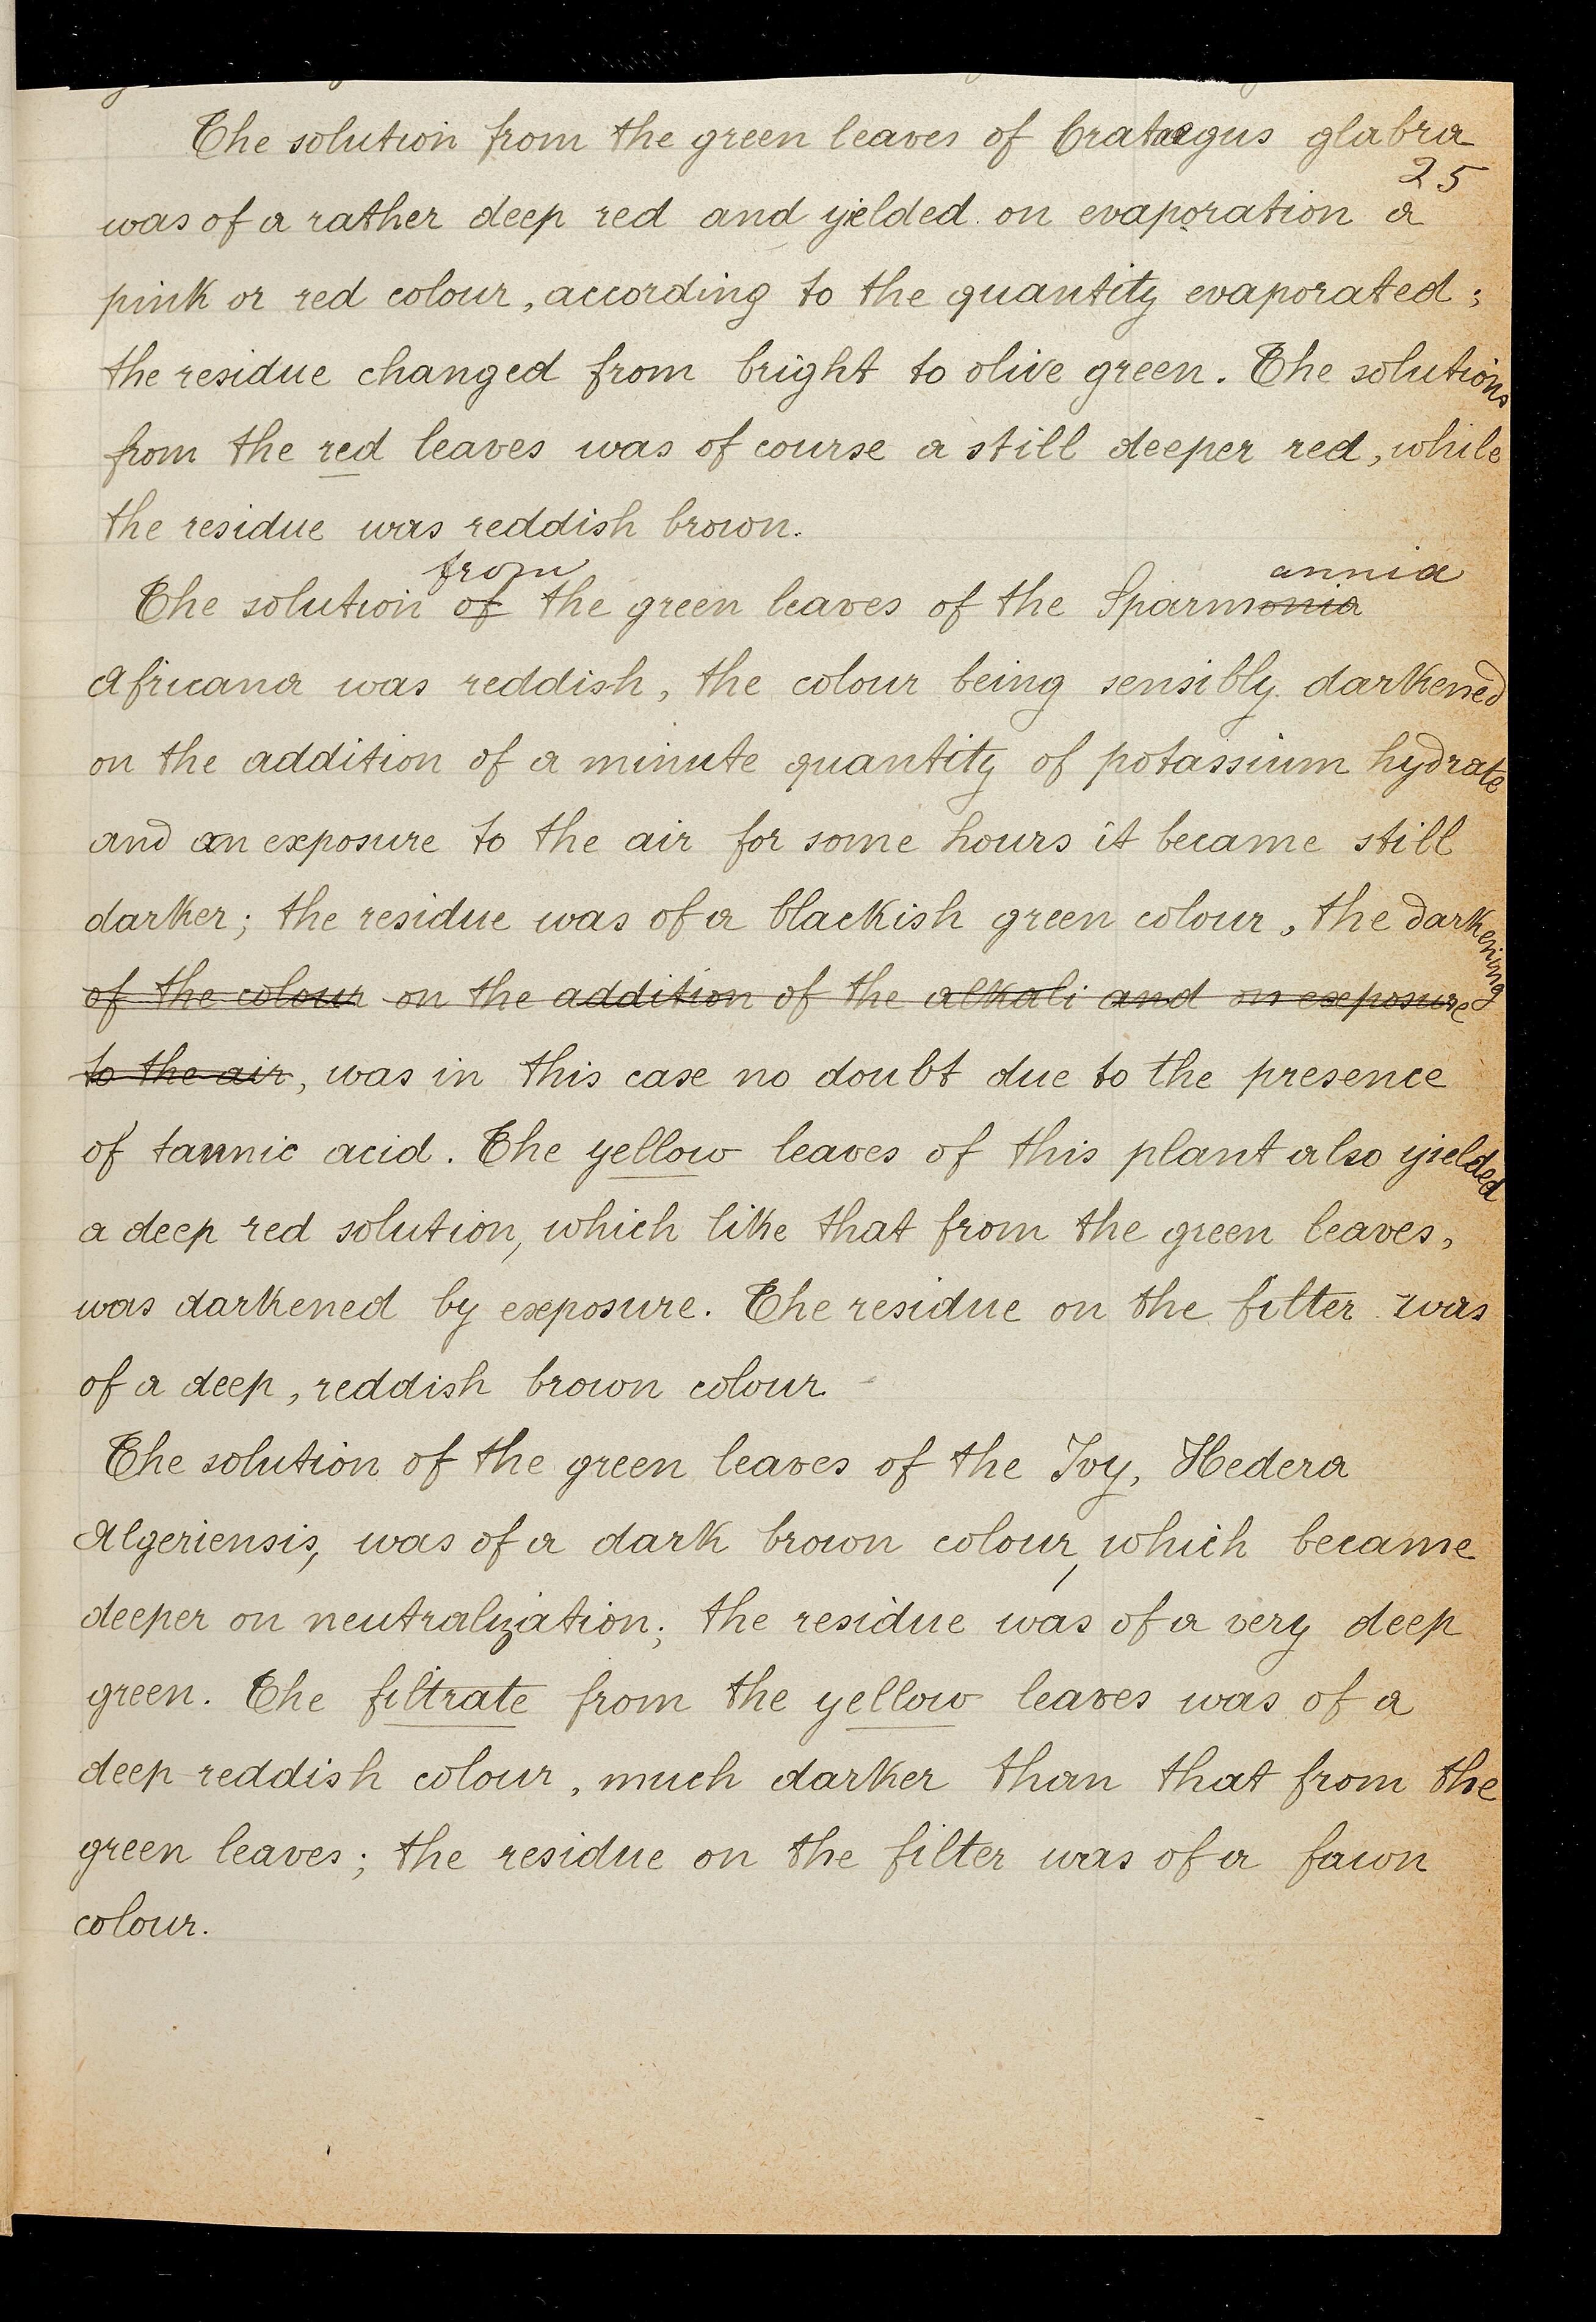 The solution from the green leaves of Crataegus glabra
25
was of a rather deep red and yielded on evaporation a
pink or red colour, according to the quantity evaporated;
the residue changed from bright to olive green. The solutions
from the red leaves was of course a still deeper red, while
the residue was reddish brown.
from annia
The solution of the green leaves of the Sparmonia
Africana was reddish, the colour being sensibly darkened
on the addition of a minute quantity of potassium hydrate
and on exposure to the air for some hours it became still
darker; the residue was of a blackish green colour, the darkening
of the colour on the addition of the alkali and on exposure
to the air, was in this case no doubt due to the presence
of tannic acid. The yellow leaves of this plant also yielded
a deep red solution, which like that from the green leaves,
was darkened by exposure. The residue on the filter was
of a deep, reddish brown colour.
The solution of the green leaves of the Ivy, Hedera
Algeriensis, was of a dark brown colour, which became
deeper on neutralization; the residue was of a very deep
green. The filtrate from the yellow leaves was of a
deep reddish colour, much darker than that from the
green leaves; the residue on the filter was of a fawn
colour.